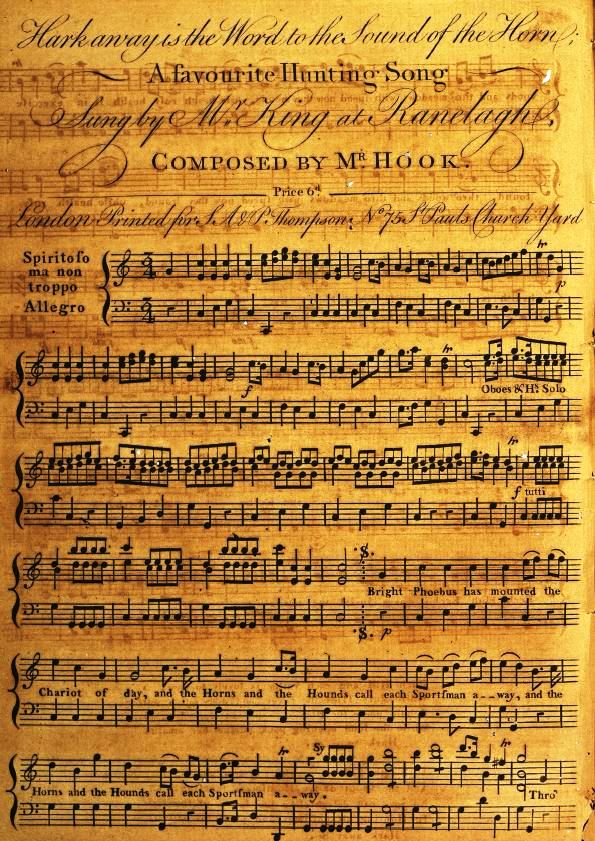 Hark away is the Word to the Sound of the Horn;
A favourite Hunting Song
Sung by Mr. King at Ranelagh.
COMPOSED BY MR. HOOK.
Price 6d.
London Printed for S. A. & P. Thompson. No. 75 St. Pauls Church Yard
Spiritoſo
ma non
troppo
Allegro
tr
p
f
Oboes & Hs. Solo
tr
f tutti
:S.
Bright Phoebus has mounted the
:S. p
Chariot of day, and the Horns and the Hounds call each Sportſman a--way, and the
tr Sy tr
Horns and the Hounds call each Sportſman a--way. Thro'